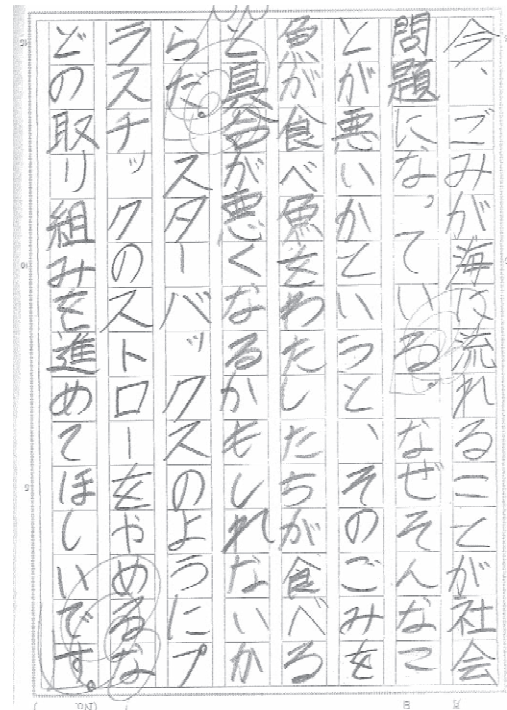 今、ごみが海に流れることが社会
問題になっている。なぜそんなこ
とが悪いかというと、そのごみを
魚が食べ魚をわたしたちが食べる
と具合が悪くなるかもしれないか
らだ。スターバックスのようにプ
ラスチックのストローをやめるな
どの取り組みを進めてほしいです。